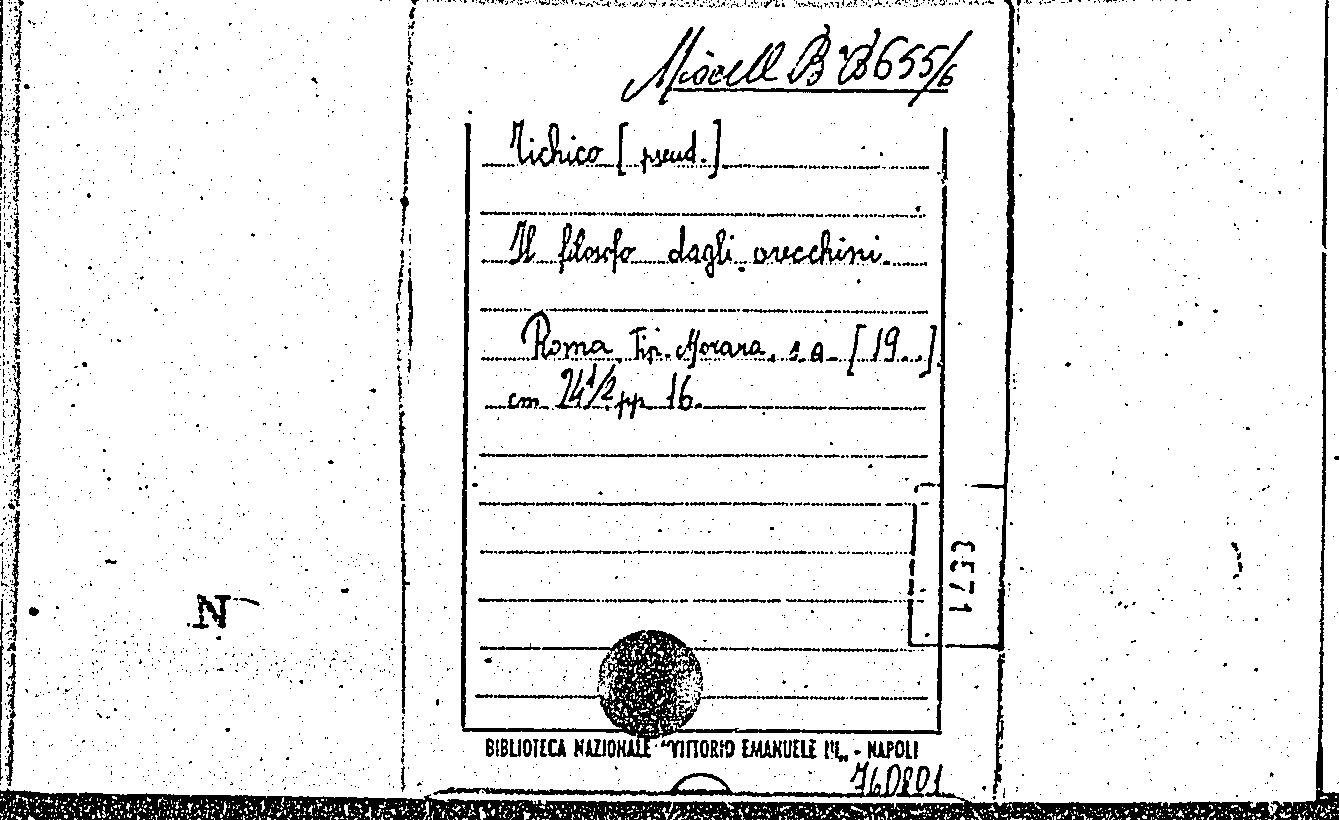 Miscell B B 655/6
Tichico [pseud.]
Il filosofo dagli orecchini.
Roma, Tip. Morara, s. a. [19..]
cm. 24 1/2 pp. 16.
N
BIBLIOTECA NAZIONALE "VITTORIO EMANUELE III„ - NAPOLI
760801